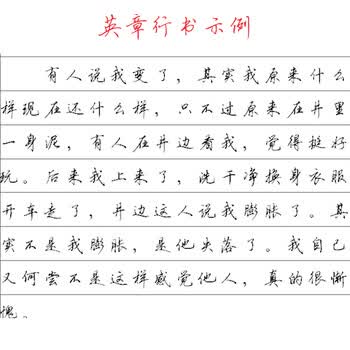 英章行书示例
有人说我变了，其实我原来什么
样现在还什么样，只不过原来在井里
一身泥，有人在井边看我，觉得挺好
玩。后来我上来了，洗干净换身衣服
开车走了，井边这人说我膨胀了。其
实不是我膨胀，是他失落了。我自己
又何尝不是这样感觉他人，真的很惭
愧。